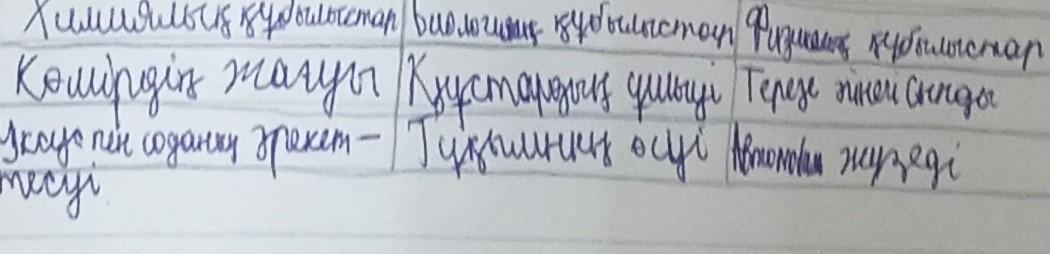 Химиялық құбылыстар Биологиялық құбылыстар Физикалық құбылыстар
Көмірдің жануы Құстардың ұшуы Терезе әйнегі сынды
Уксус пен соданың әрекет-
тесуі Тұқымның өсуі Автомобиль жүреді